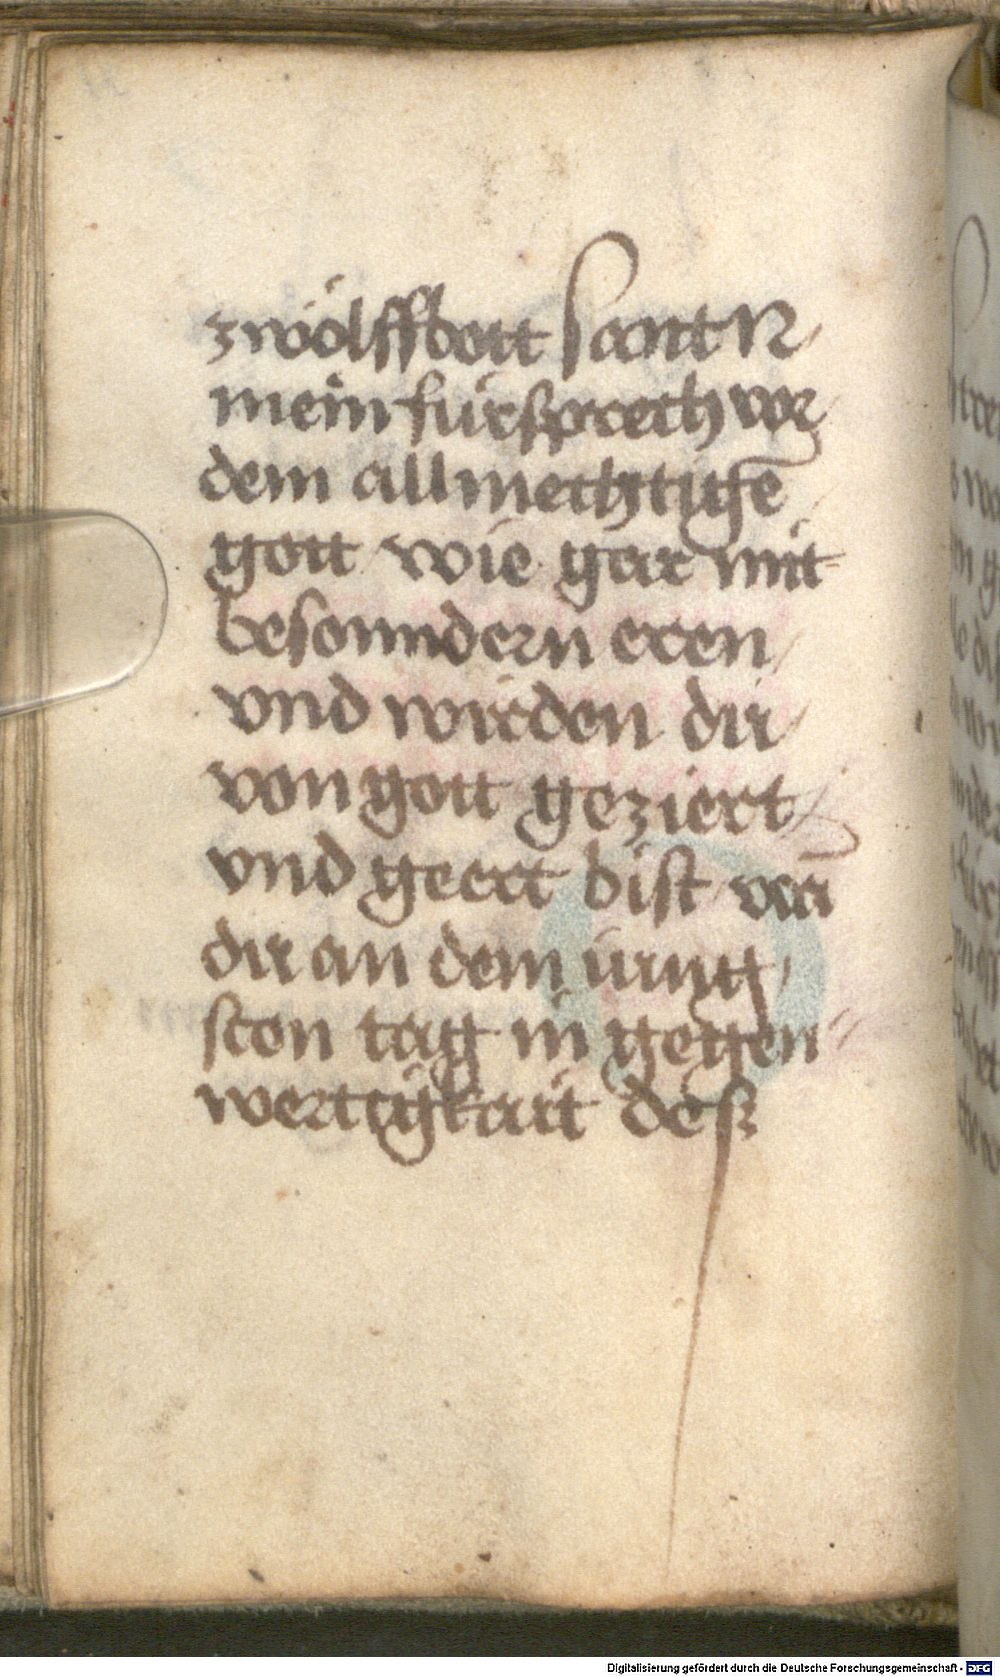 zwölffbott sant N
mein fürsprech vor
dem allmechtigē
gott / wie gar mit
besonndern eren /
vnd wirden dir /
von gott geziert /
vnd geert bist
dir an dem iungſ
sten tag in gegen
wertigkait deß
Digitalisierung gefördert durch die Deutsche Forschungsgemeinschaft - DFG